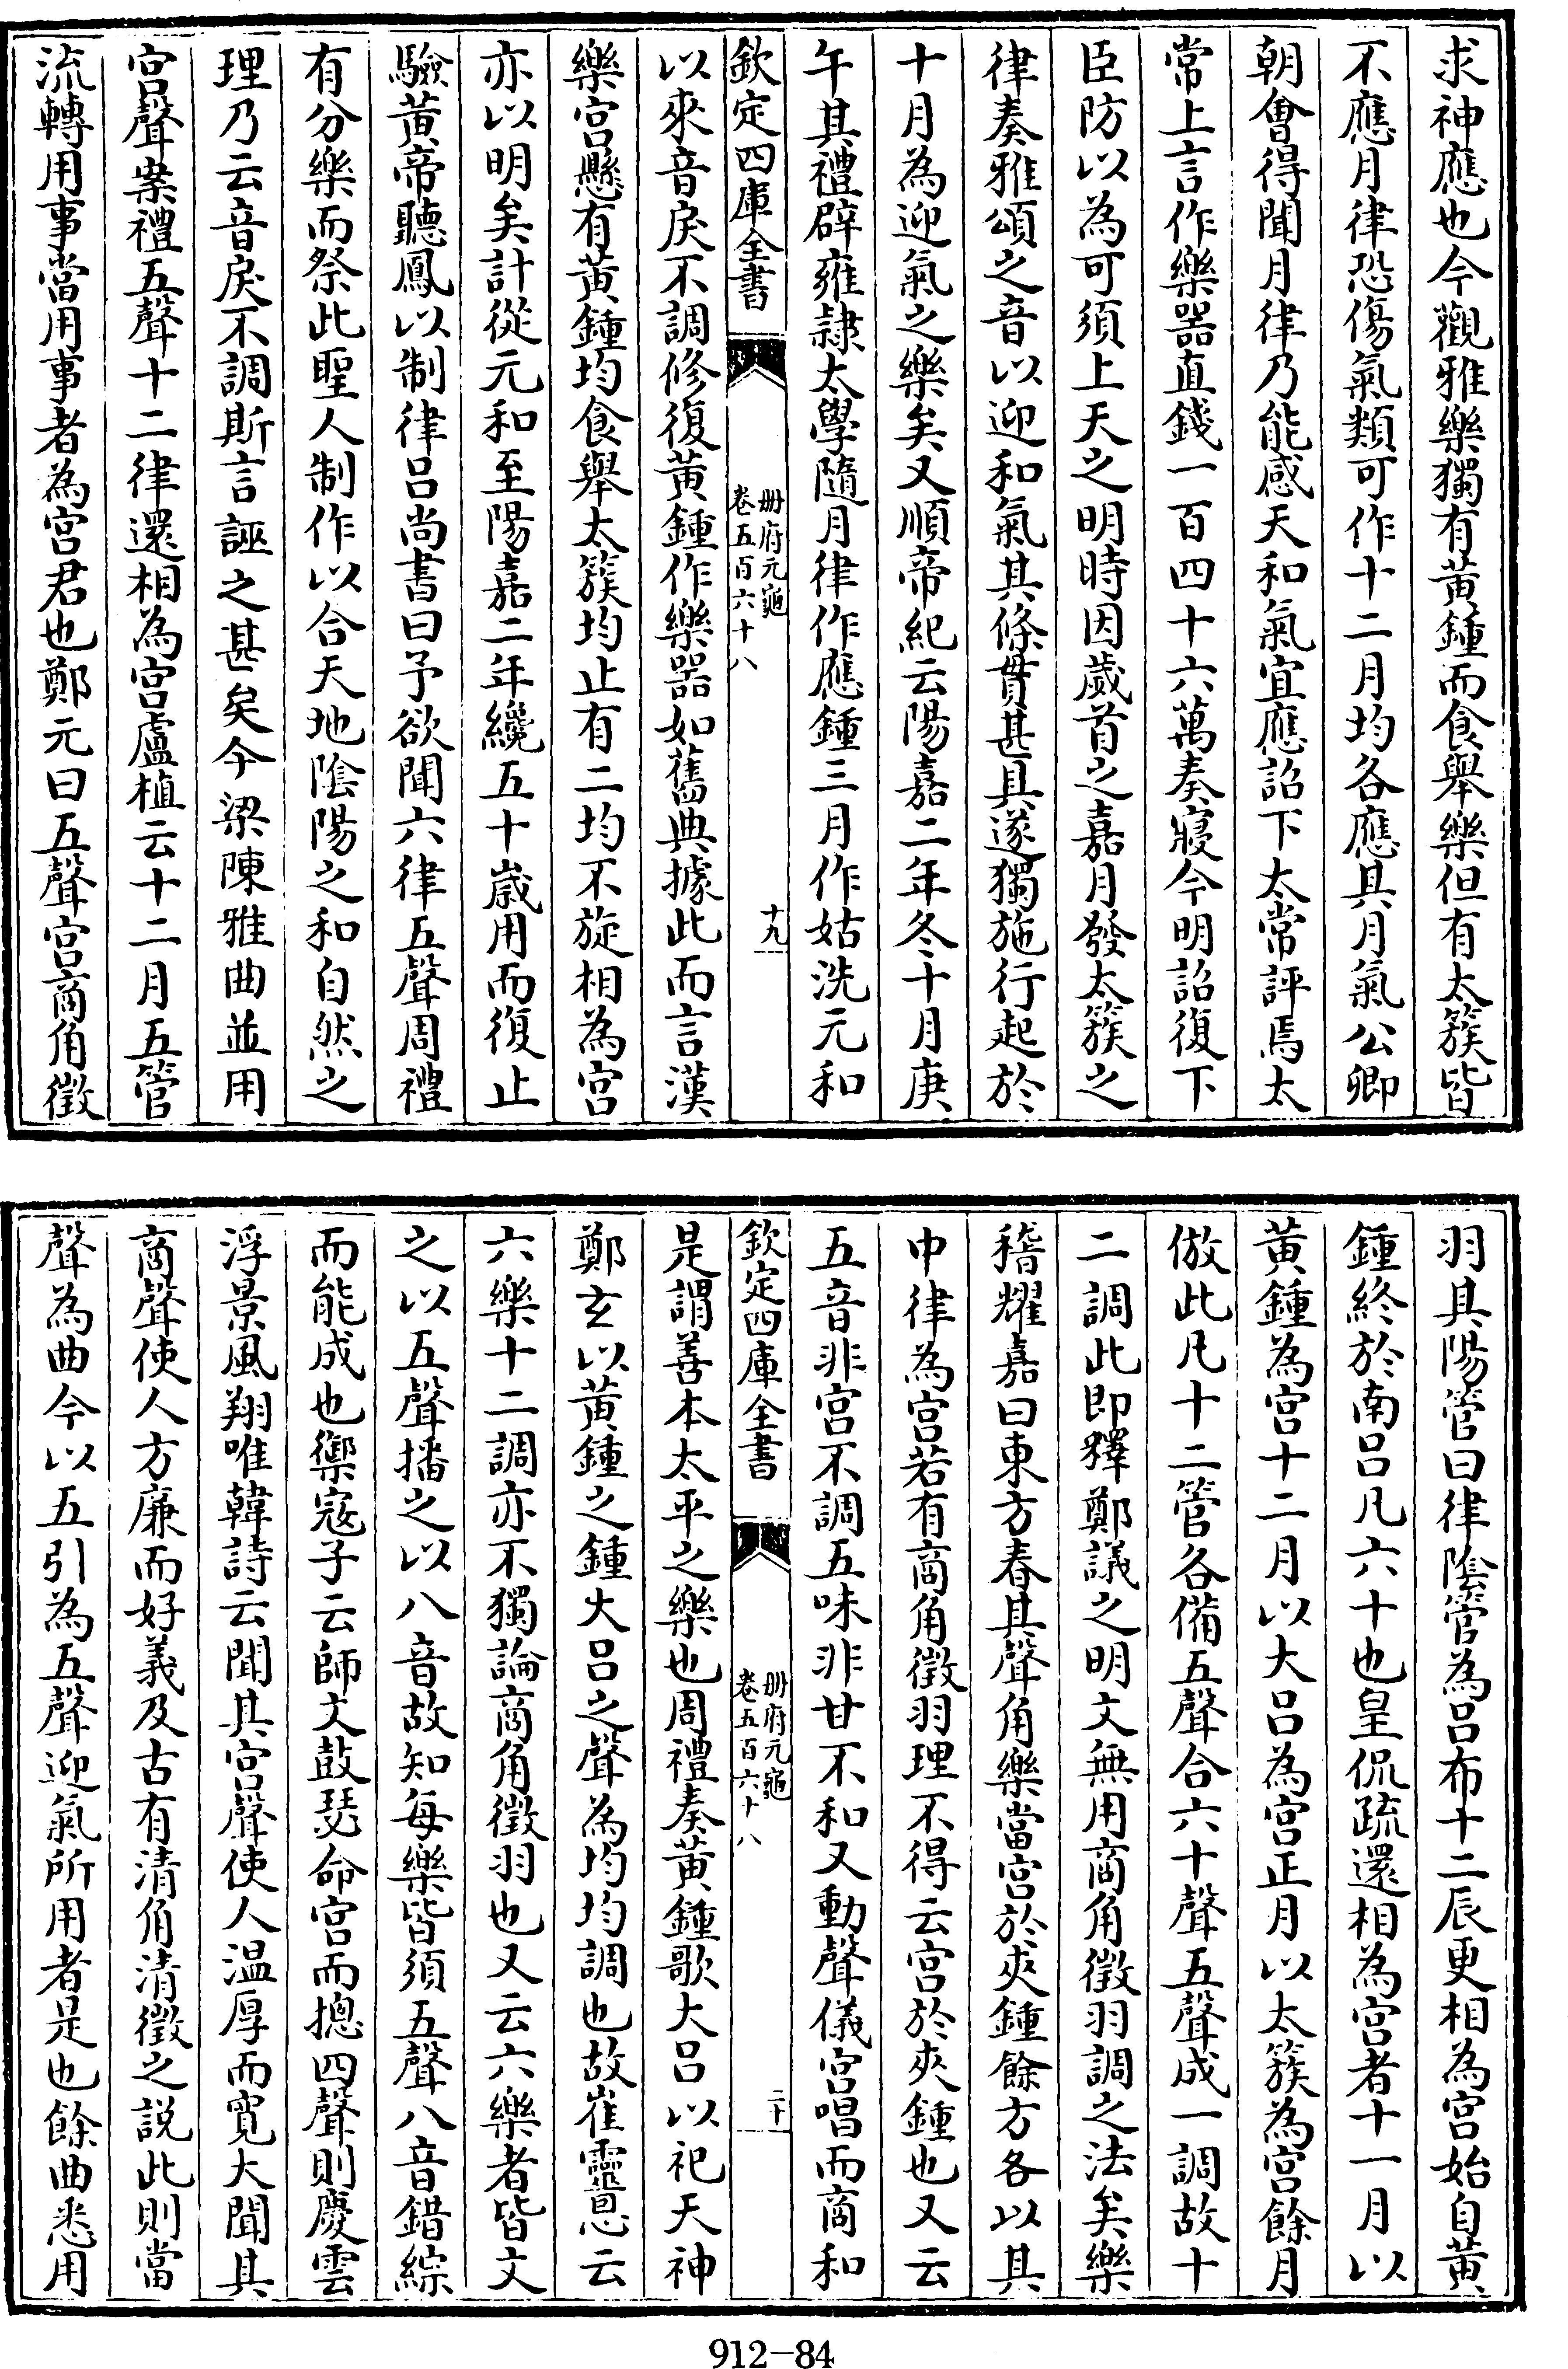 求神應也今觀雅樂獨有黄鍾而食舉樂但有太簇皆
不應月律恐傷氣類可作十二月均各應其月氣公卿
朝會得聞月律乃能感天和氣宜應詔下太常評焉太
常上言作樂器直錢一百四十六萬奏寢今明詔復下
臣防以為可須上天之明時因歲首之嘉月發太簇之
律奏雅頌之音以迎和氣其條貫甚具遂獨施行起於
十月為迎氣之樂矣又順帝紀云陽嘉二年冬十月庚
午其禮辟雍隸太學隨月律作應鍾三月作姑洗元和
欽定四庫全書
册府元龜
卷五百六十八
十九
以來音戾不調修復黄鍾作樂器如舊典據此而言漢
樂宫懸有黄鍾均食舉太簇均止有二均不旋相為宫
亦以明矣計從元和至陽嘉二年纔五十歲用而復止
驗黄帝聽鳳以制律吕尚書曰予欲聞六律五聲周禮
有分樂而祭此聖人制作以合天地隂陽之和自然之
理乃云音戾不調斯言誣之甚矣今梁陳雅曲並用
宫聲案禮五聲十二律還相為宫盧植云十二月五管
流轉用事當用事者為宫君也鄭元曰五聲宫商角徵
羽其陽管曰律隂管為吕布十二辰更相為宫始自黄
鍾終於南吕凡六十也皇侃疏還相為宫者十一月以
黄鍾為宫十二月以大吕為宫正月以太簇為宫餘月
倣此凡十二管各備五聲合六十聲五聲成一調故十
二調此即釋鄭議之明文無用商角徵羽調之法矣樂
稽耀嘉曰東方春其聲角樂當宫於夾鍾餘方各以其
中律為宫若有商角徵羽理不得云宫於夾鍾也又云
五音非宫不調五味非甘不和又動聲儀宫唱而商和
欽定四庫全書
册府元龜
卷五百六十八
二十
是謂善本太平之樂也周禮奏黄鍾歌大吕以祀天神
鄭玄以黄鍾之鍾大吕之聲為均均調也故崔靈恩云
六樂十二調亦不獨論商角徵羽也又云六樂者皆文
之以五聲播之以八音故知每樂皆須五聲八音錯綜
而能成也禦寇子云師文鼓琴命宫而摠四聲則慶雲
浮景風翔唯韓詩云聞其宫聲使人温厚而寛大聞其
商聲使人方亷而好義及古有清角清徵之説此則當
聲為曲今以五引為五聲迎氣所用者是也餘曲悉用
912-84